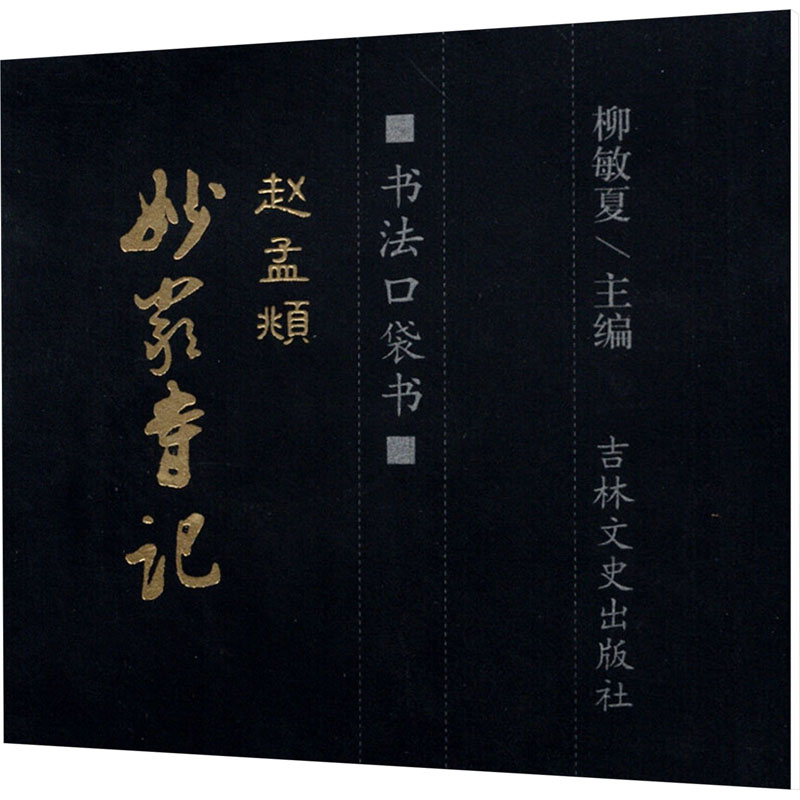 柳敏夏/主编
吉林文史出版社
■书法口袋书■
赵孟頫
妙严寺记